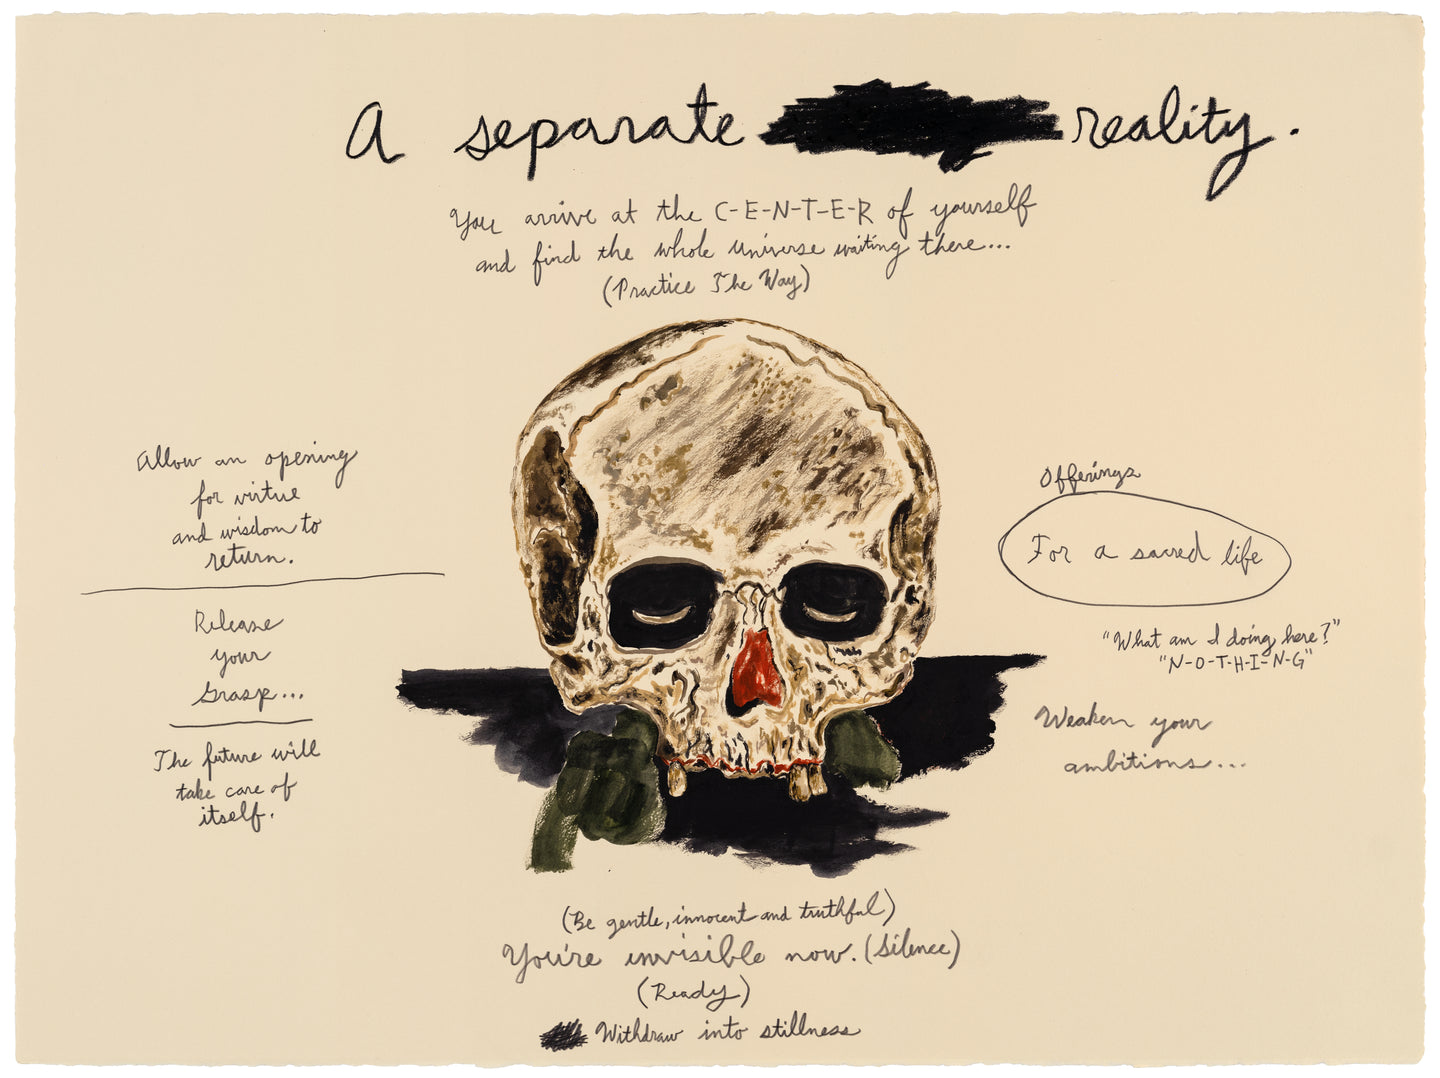 A separate reality.
You arrive at the C-E-N-T-E-R of yourself
and find the whole universe waiting there...
(Practice The Way)
Allow an opening
for virtue
and wisdom to
return.
Release
your
Grasp...
The future will
take care of
itself.
Offerings
For a sacred life
"What am I doing here?"
"N-O-T-H-I-N-G"
Weaken your
ambitions...
(Be gentle, innocent and truthful)
You're invisible now. (Silence)
(Ready)
Withdraw into stillness